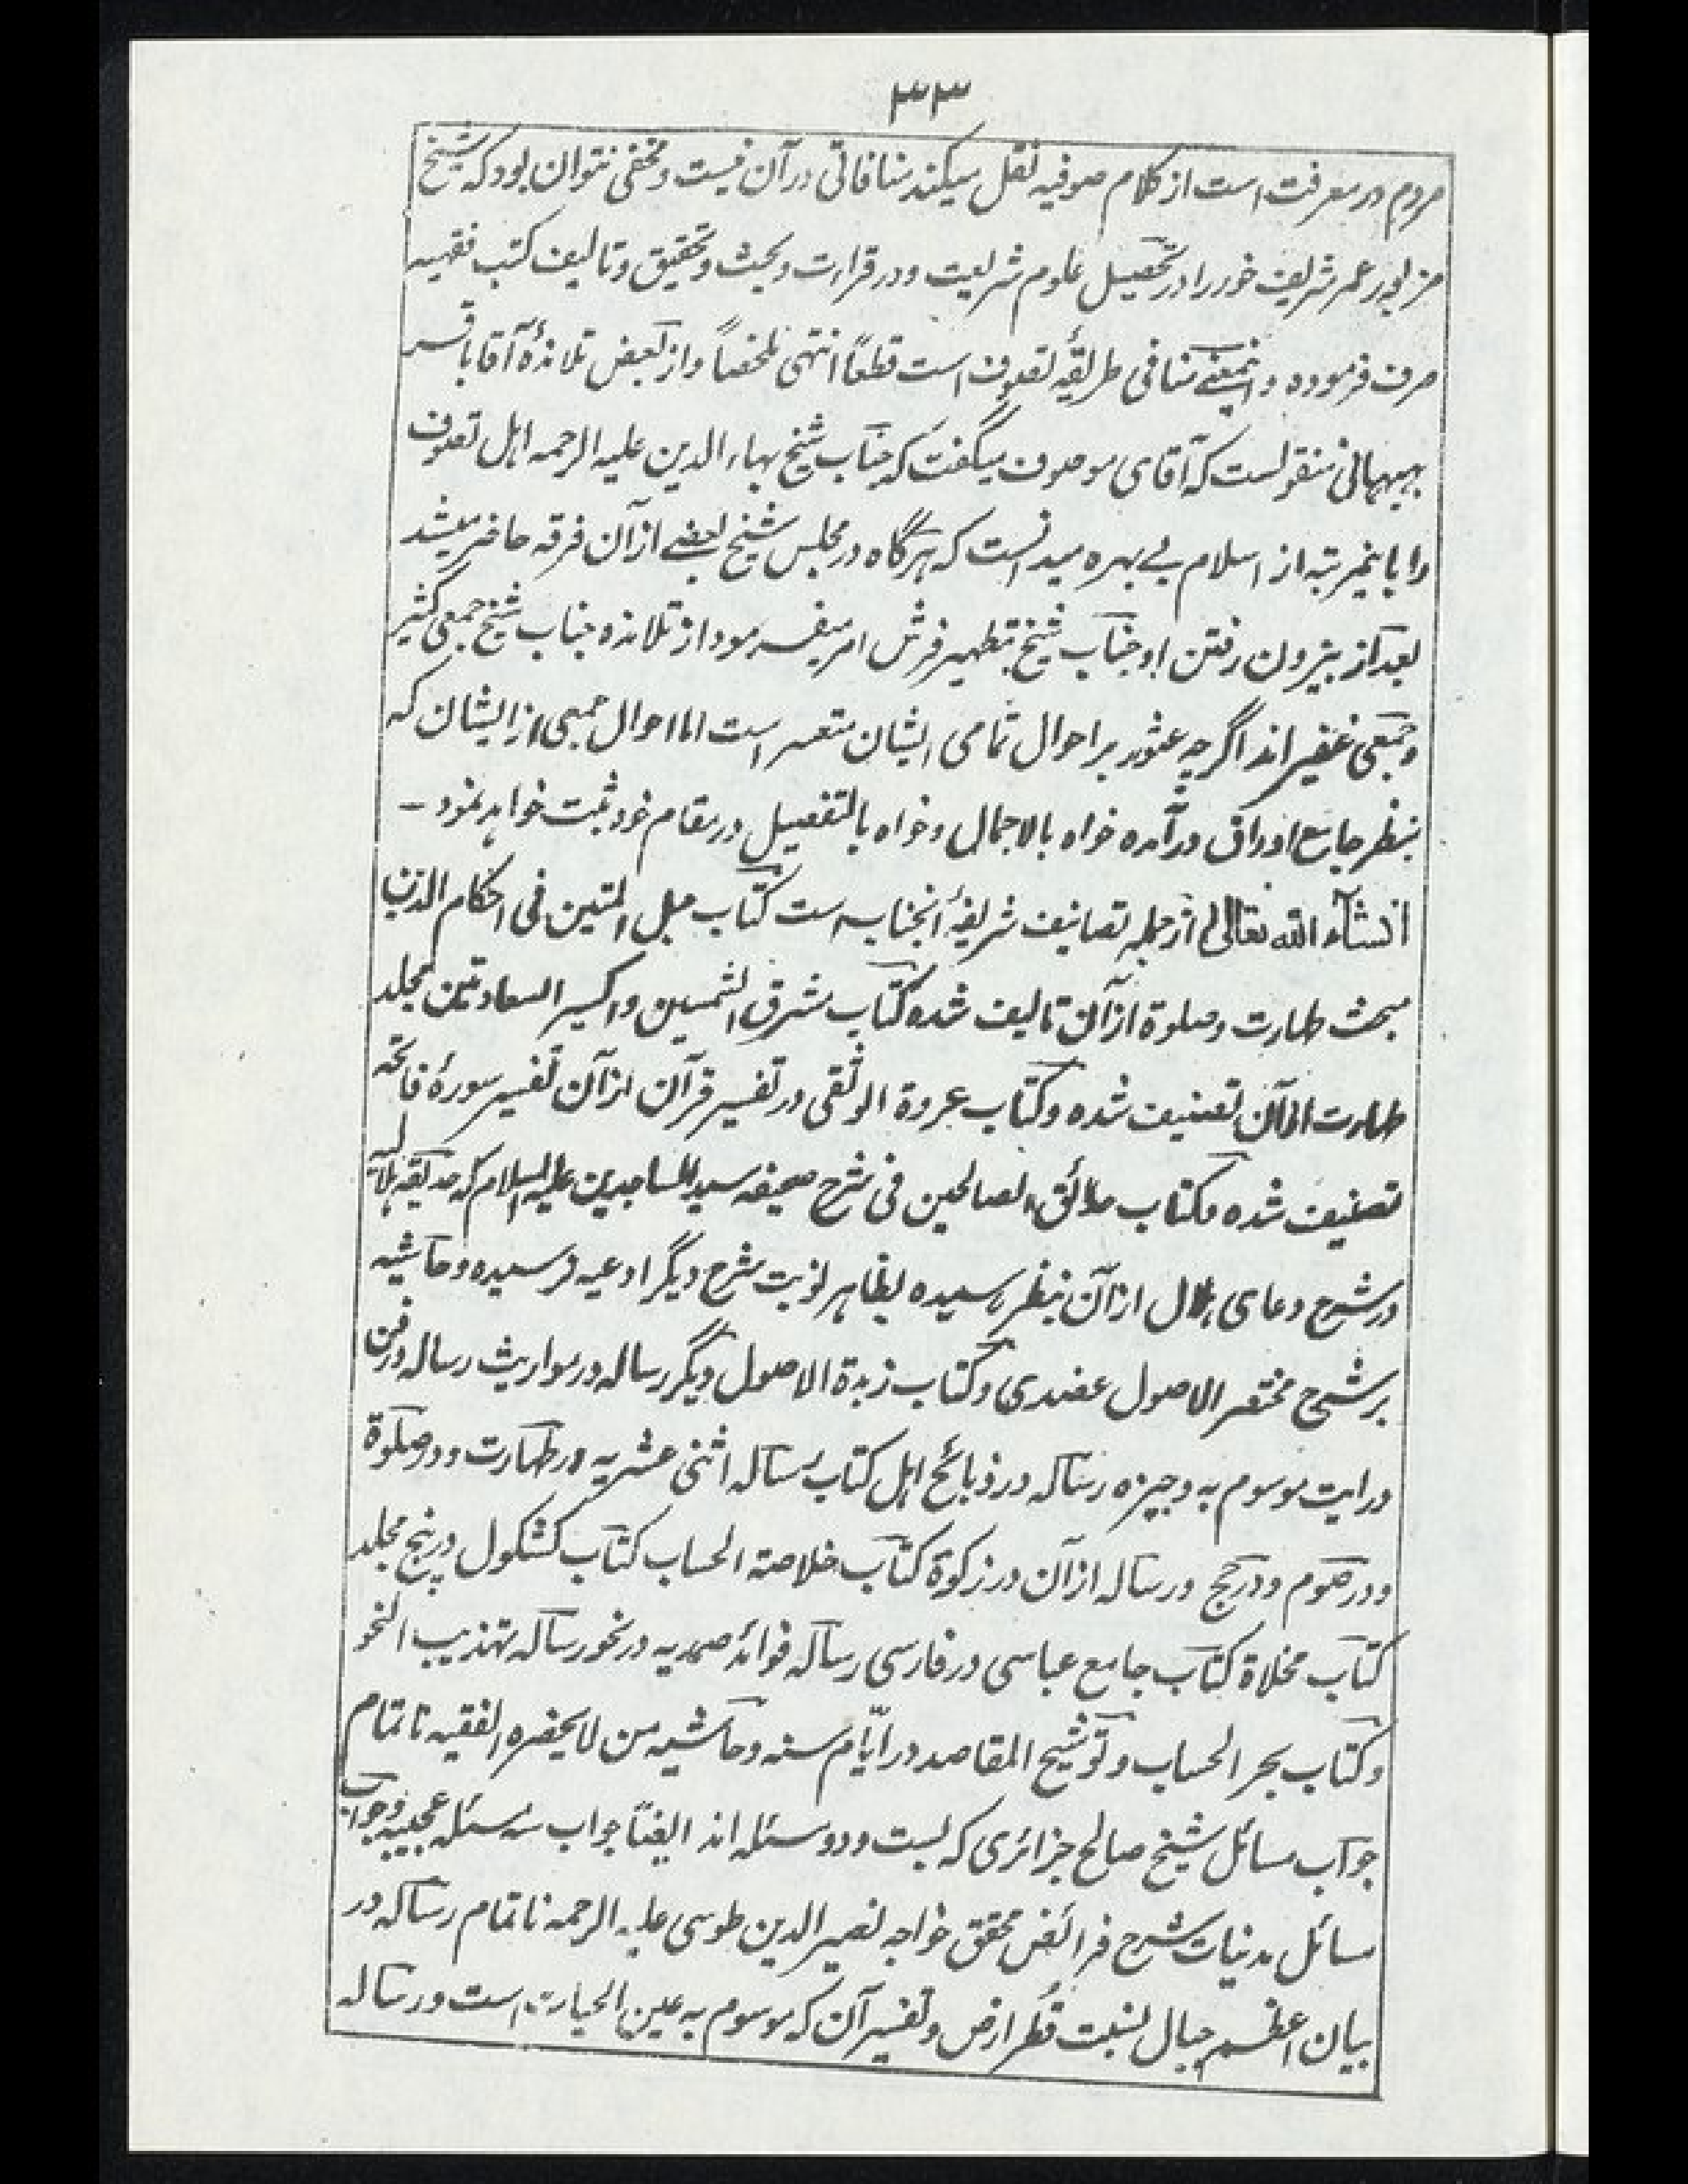 ۳۳
مردم در معرفت است از کلام صوفیه نقل میکند منافاتی در آن نیست و مخفی نتوان بود که شیخ
مزبور عمر شریف خود را در تحصیل علوم شریعت و در قراءت و بحث و تحقیق و تالیف کتب فقهیه
صرف فرموده و اینمعنے منافی طریقهٔ تصوف است قطعاً انتهی ملخصاً و از بعض تلامذهٔ آقا باقر
بهبهانی منقولست که آقای موصوف میگفت که جناب شیخ بهاء الدین علیه الرحمه اهل تصوف
را باینمرتبه از اسلام بے بهره میدانست که هرگاه در مجلس شیخ بعضے از آن فرقه حاضر میشد
بعد از بیرون رفتن او جناب شیخ بتطهیر فرش امر میفرمود از تلامذه جناب شیخ جمعی کثیر
و جمعی غفیر اند اگرچه عثور بر احوال تمامی ایشان متعسر است اما احوال جمعی از ایشان که
بنظر جامع اوراق درآمده خواه بالاجمال و خواه بالتفصیل در مقام خود ثبت خواهد نمود –
انشاء الله تعالی از جمله تصانیف شریفهٔ آنجناب است کتاب حبل المتین فی احکام الدین
مبحث طهارت و صلوة از آن تالیف شده کتاب مشرق الشمسین و اکسیر السعادتین مجلد
طهارت از آن تصنیف شده و کتاب عروة الوثقی در تفسیر قرآن از آن تفسیر سورهٔ فاتحه
تصنیف شده و کتاب حدائق الصالحین فی شرح صحیفه سید الساجدین علیه السلام که حدیقه هلالیه
در شرح دعای هلال از آن بنظر رسیده بظاهر نوبت شرح دیگر ادعیه نرسیده و حاشیه
بر شرح مختصر الاصول عضدی و کتاب زبدة الاصول دیگر رساله در مواریث رساله در فن
درایت موسوم به وجیزه رساله در ذبائح اهل کتاب رساله اثنی عشریه در طهارت و در صلوة
و در صوم و در حج و رساله از آن در زکوة کتاب خلاصة الحساب کتاب کشکول در پنج مجلد
کتاب مخلاة کتاب جامع عباسی در فارسی رساله فوائد صمدیه در نحو رساله تهذیب النحو
و کتاب بحر الحساب و توشیح المقاصد در ایّام سنه و حاشیه من لا یحضره الفقیه ناتمام
جواب مسائل شیخ صالح جزائری که بست و دو مسئله اند ایضاً جواب سه مسئله عجیبه و جواب
مسائل مدنیات شرح فرائض محقق خواجه نصیر الدین طوسی علیه الرحمه ناتمام رساله در
بیان اعظم جبال نسبت قطر ارض و تفسیر آن که موسوم به عین الحیات است و رساله